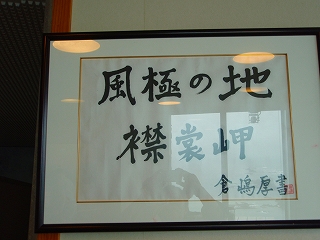 風極の地
襟裳岬
倉嶋厚書